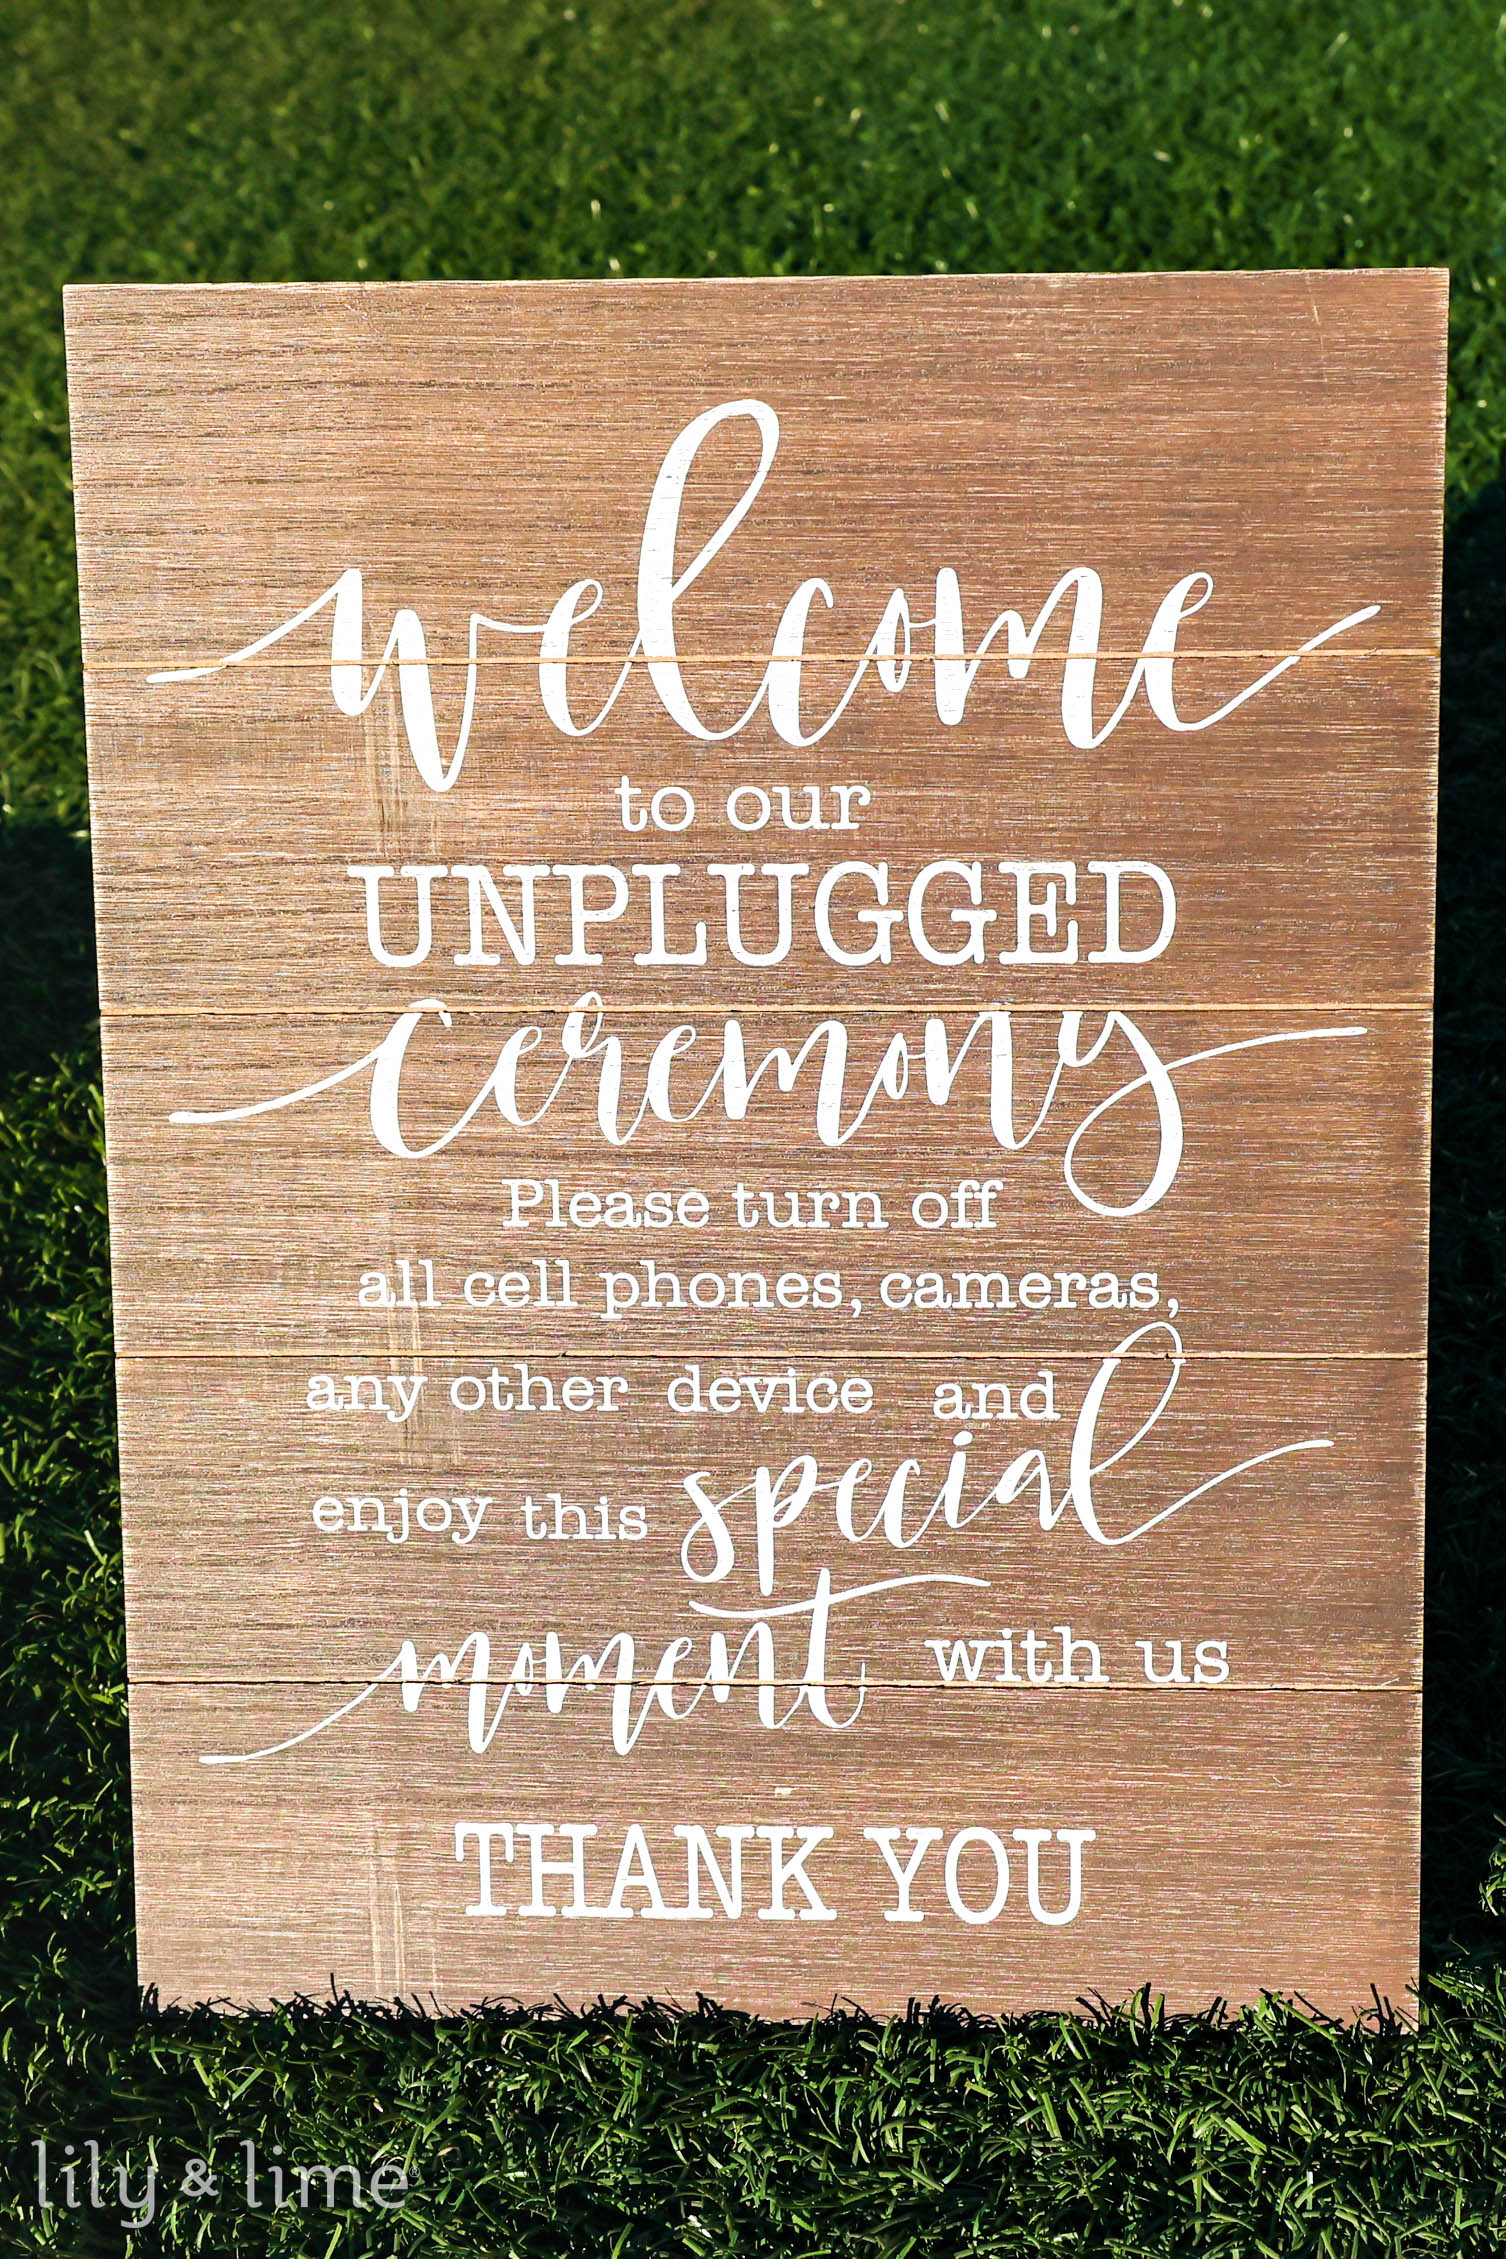 welcome
to our
UNPLUGGED
ceremony
Please turn off
all cell phones, cameras,
any other device and
enjoy this special
moment with us
THANK YOU
lily & lime®